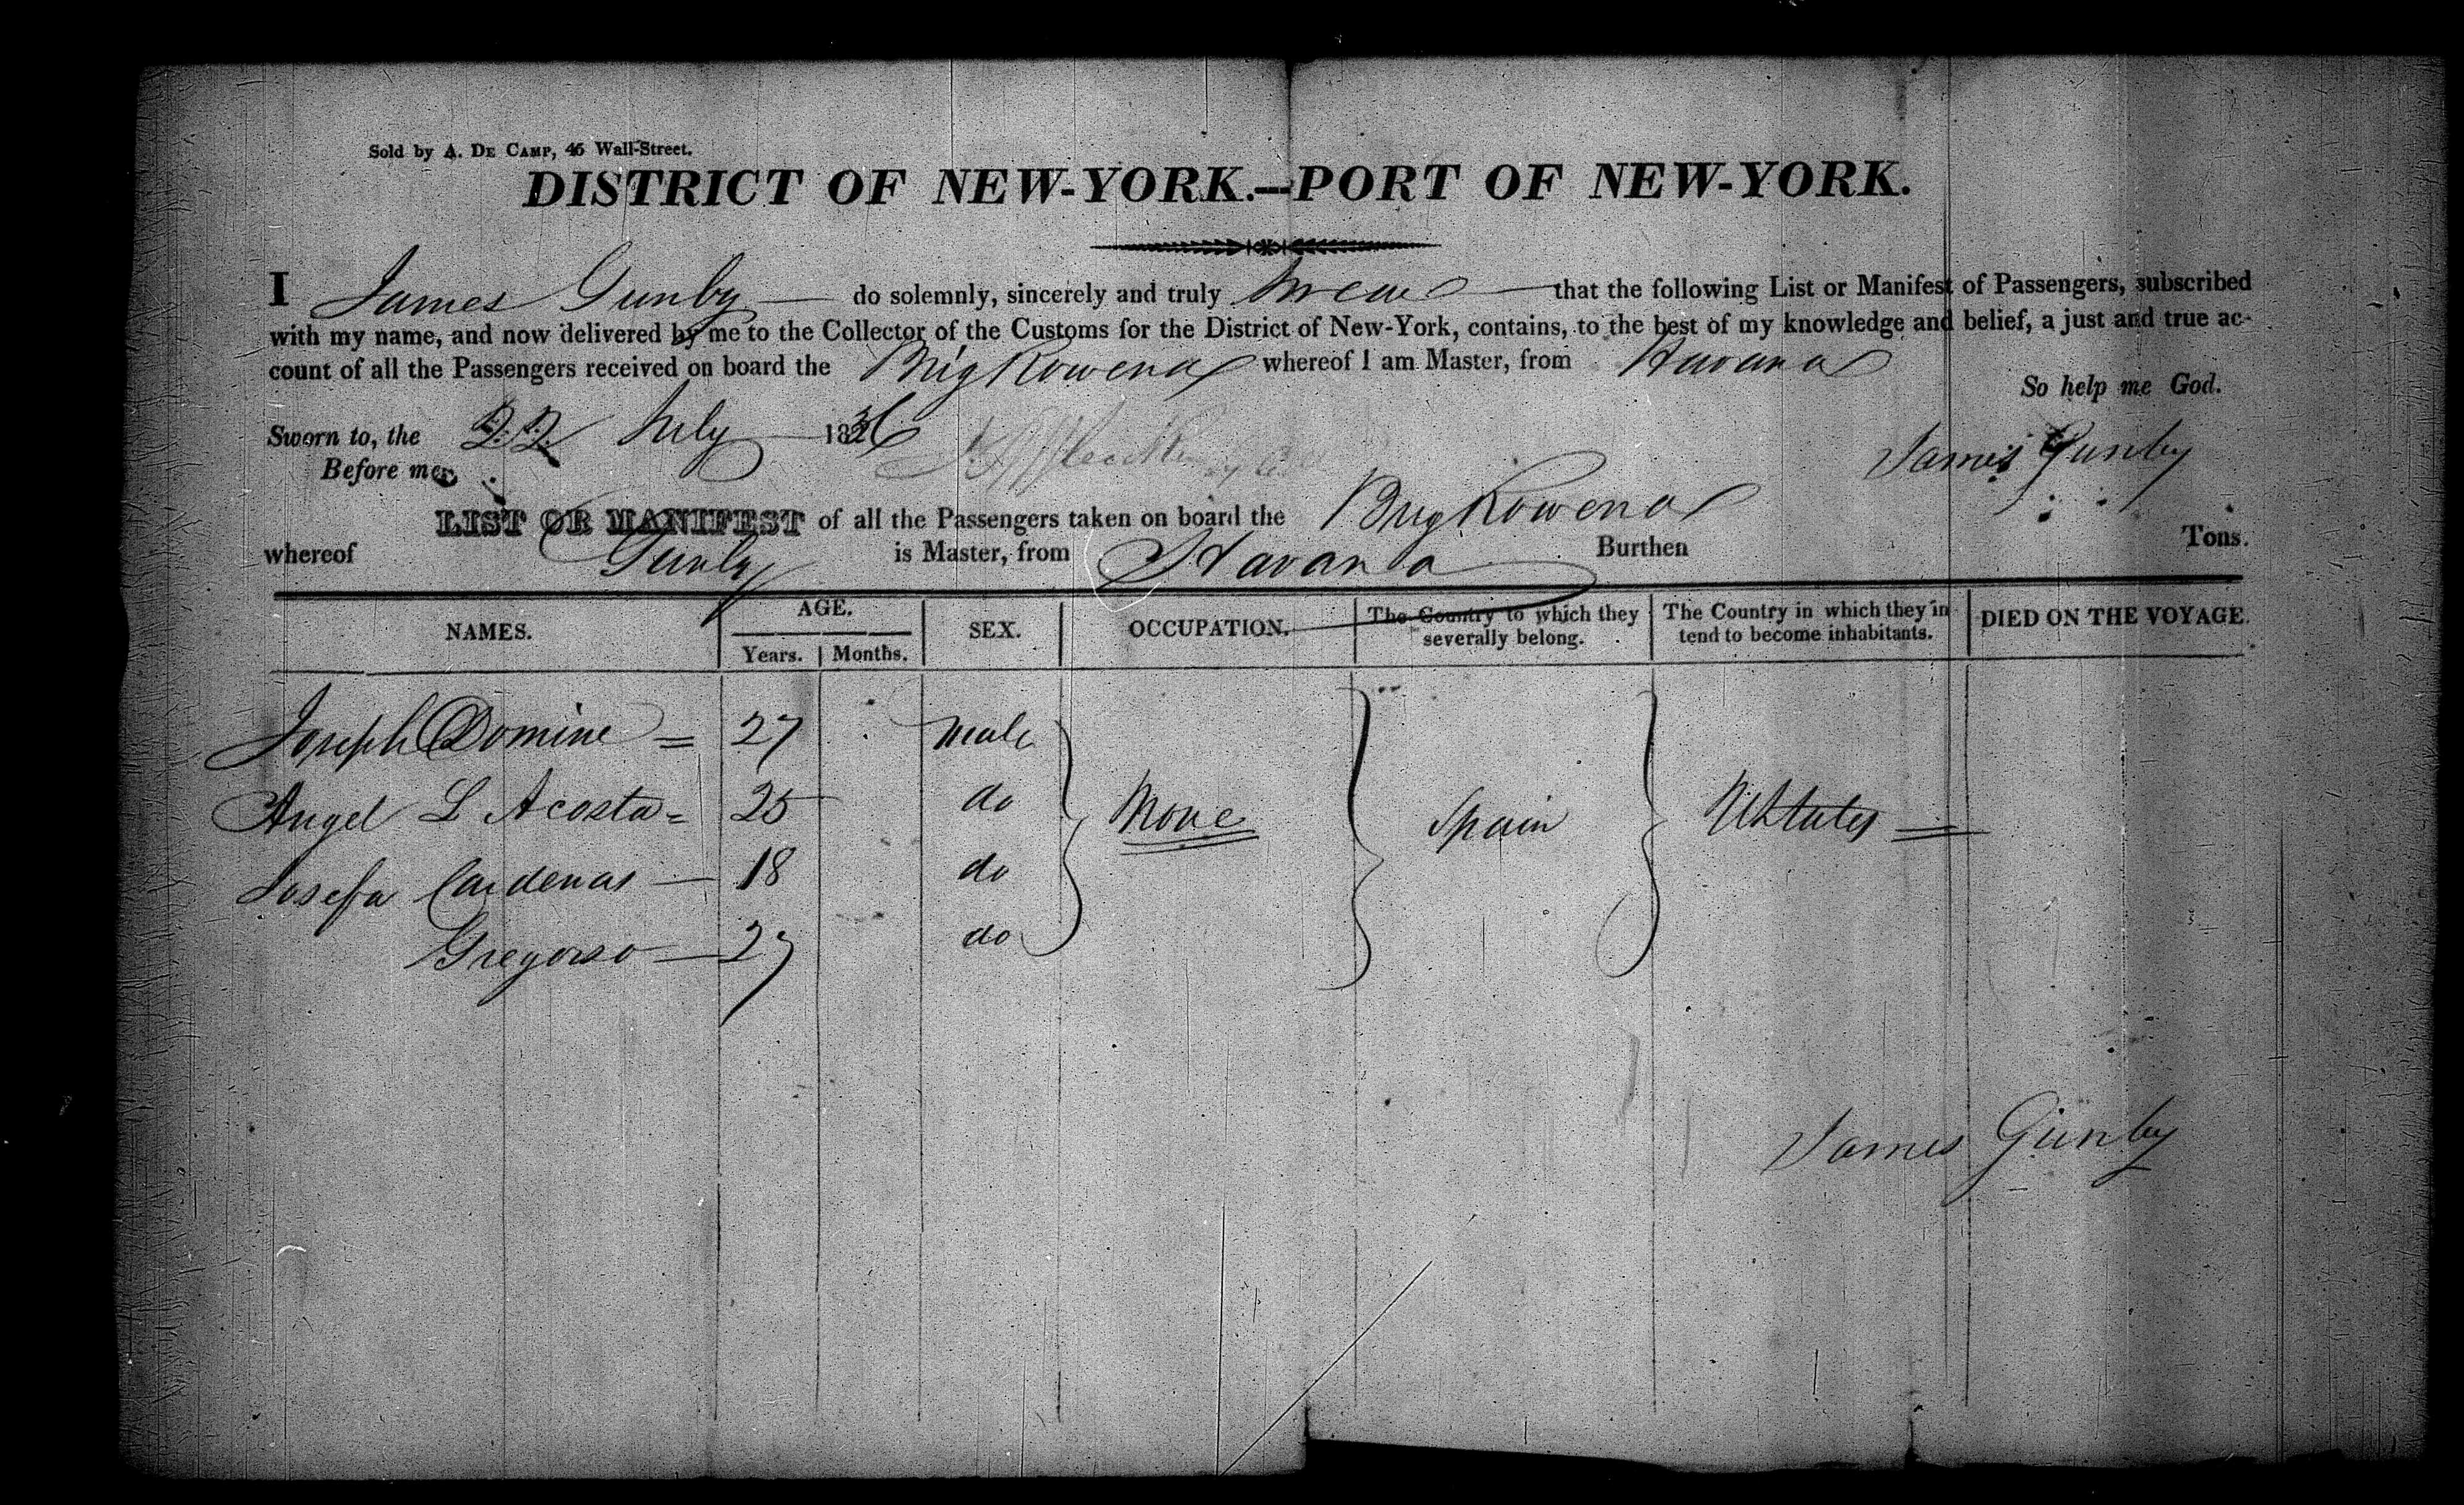 Sold by A. De Camp, 46 Wall-Street.
DISTRICT OF NEW-YORK.—PORT OF NEW-YORK.
I James Gunby — do solemnly, sincerely and truly swear — that the following List or Manifest of Passengers, subscribed
with my name, and now delivered by me to the Collector of the Customs for the District of New-York, contains, to the best of my knowledge and belief, a just and true ac-
count of all the Passengers received on board the Brig Rowena whereof I am Master, from Havana
So help me God.
Sworn to, the 22 July 1836
James Gunby
Before me,
LIST OR MANIFEST of all the Passengers taken on board the Brig Rowena
whereof Gunby is Master, from Havana Burthen Tons.
NAMES. AGE. Years. Months. SEX. OCCUPATION. The Country to which they severally belong. The Country in which they intend to become inhabitants. DIED ON THE VOYAGE.
Joseph Domine = 27 male
Angel L Acosta = 25 do None Spain UStates =
Josefa Cardenas — 18 do
Gregorso — 27 do
James Gunby